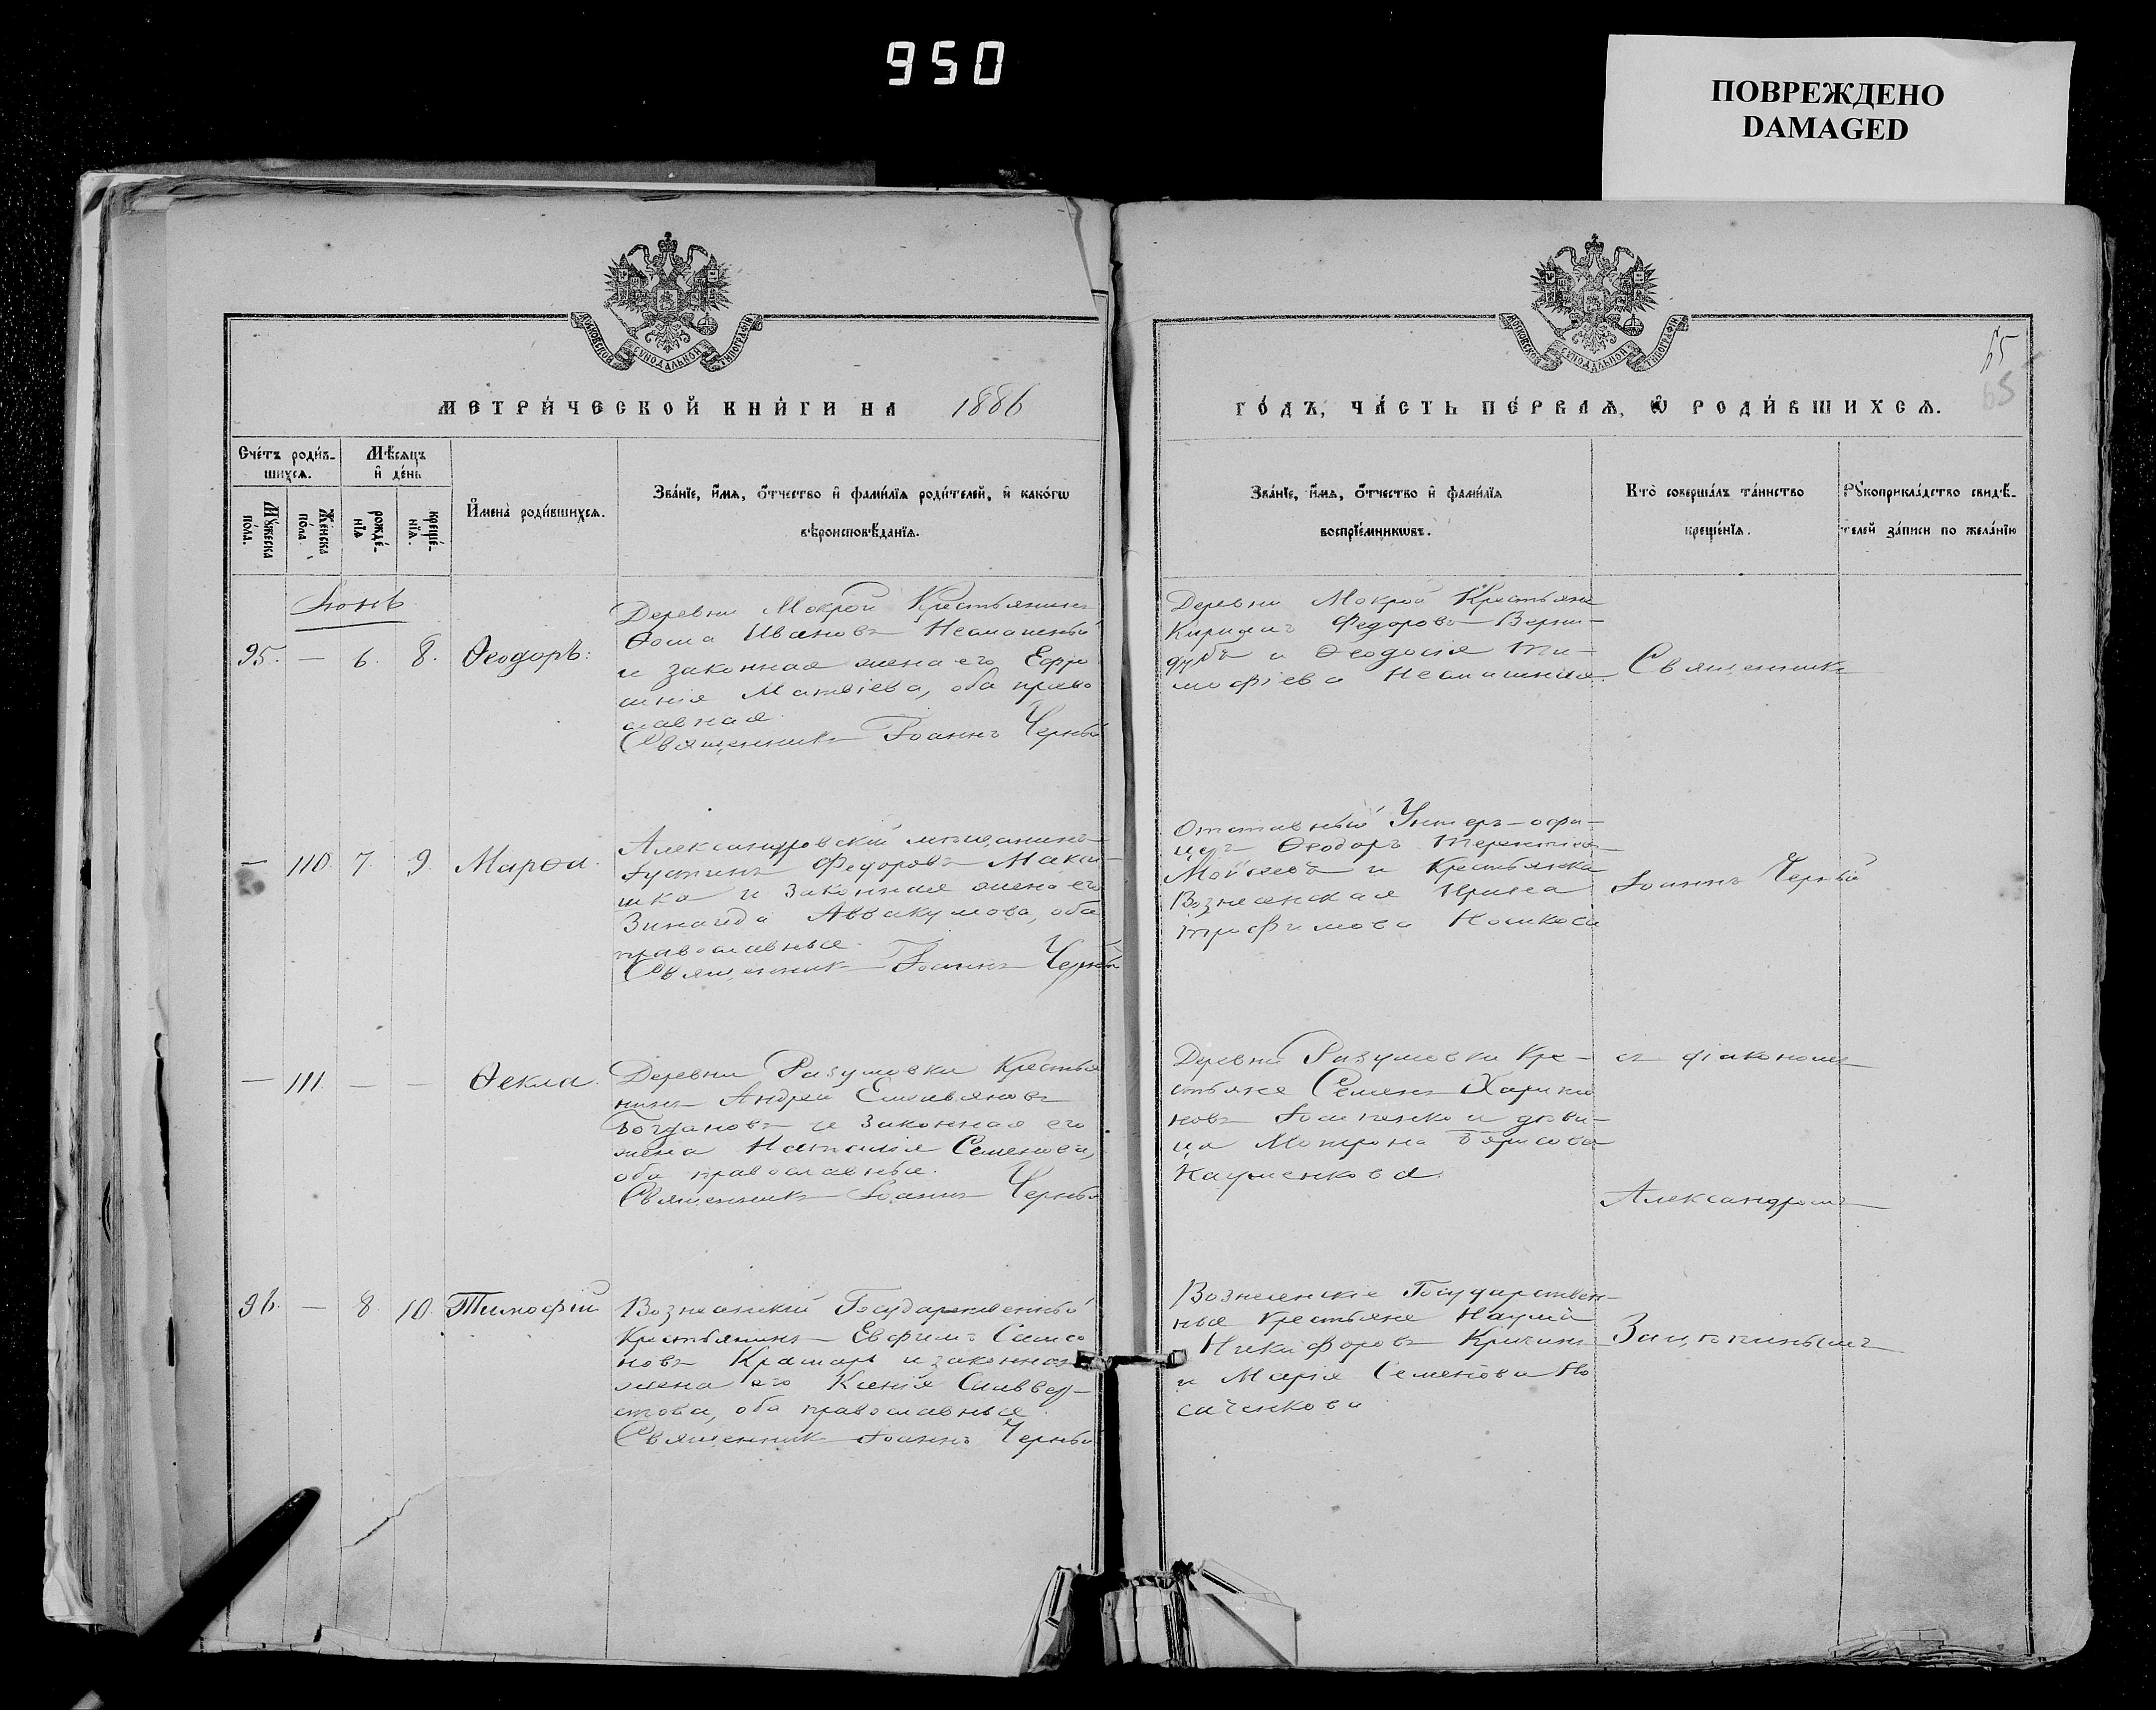 950
ПОВРЕЖДЕНО
DAMAGED
МОСКОВСКОЙ СѴНОДАЛЬНОЙ ТИПОГРАФІИ
МОСКОВСКОЙ СѴНОДАЛЬНОЙ ТИПОГРАФІИ
65
65
МЕТРИ́ЧЕСКОЙ КНИ́ГИ НА 1886
ГО́ДЪ, ЧА́СТЬ ПЕ́РВАѦ, Ѡ҆ РОДИ́ВШИХСѦ.
Сче́тъ роди́в-
шихсѧ.
Мꙋ́жеска по́ла.
Же́нска по́ла.
Мѣ́сѧцъ
и҆ де́нь
рожде́-
нїѧ
креще́-
нїѧ.
И҆мена̀ роди́вшихсѧ.
Зва́нїе, и҆́мѧ, ѻ҆́тчество и҆ фамі́лїѧ роди́телей, и҆ како́гѡ
вѣроисповѣ́данїѧ.
Зва́нїе, и҆́мѧ, ѻ҆́тчество и҆ фамі́лїѧ
воспрїе́мникѡвъ.
Кто̀ соверша́лъ та́инство
креще́нїѧ.
Рꙋкоприкла́дство свидѣ́-
телей за́писи по жела́нїю
Іюнь
95. — 6. 8. Ѳеодоръ:
Деревни Мокрой Крестьянинъ
Ѳома Ивановъ
и законная жена его Ефро
синія Матвіева, оба право
славная.
Священникъ Іоаннъ Черный
Деревни Мокрой Крестьяне
Кирилъ Федоровъ Верни-
дубъ и Ѳеодосія Ти-
мофіева
Священникъ
— 110. 7. 9. Марѳа.
Александровскій мѣщанинъ
Іустинъ Федоровъ Макси-
шка и законная жена его
Зинаида Аввакумова, оба
православные.
Священникъ Іоаннъ Черный
Отставный Унтеръ-офи-
церъ Ѳеодоръ Терентіевъ
и Крестьянка
Вознесенская Ирина
Трофимова
Іоаннъ Черный
— 111. — — Ѳекла.
Деревни Разумовки Крестья
нинъ Андрей Емельяновъ
Богдановъ и законная его
жена Наталія Семенова,
оба православные.
Священникъ Іоаннъ Черный
Деревни Разумовки Кре-
стьяне Семенъ Харито
новъ и дѣви-
ца Матрона Борисова
Науменкова.
съ діакономъ
Александромъ
96. — 8. 10. Тимофій
Вознесенскій Государственный
Крестьянинъ Евфимъ Самсо
новъ Крамарь и законная
жена его Ксенія Сильвер-
стова, оба православные.
Священникъ Іоаннъ Черный
Вознесенскіе Государствен-
ные крестьяне Наумъ
Никифоровъ
и Марія Семенова Но
саченкова